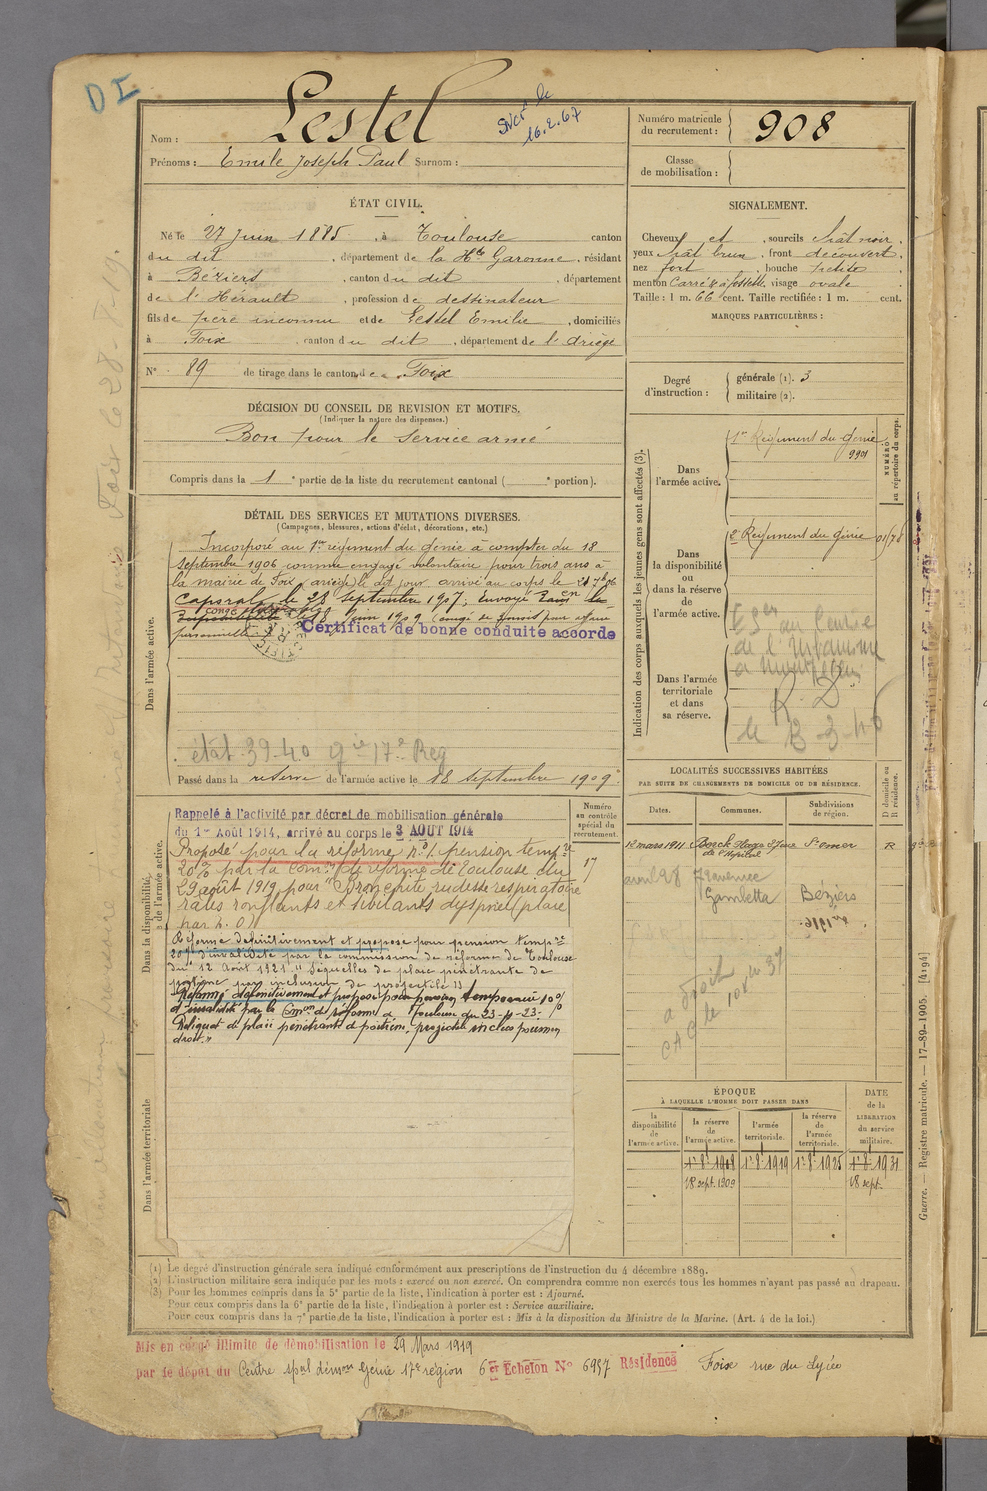 DI
Nom : Lestel
Prénoms : Emile Joseph Paul Surnom :
16.2.67
Numéro matricule du recrutement : 908
Classe de mobilisation :
ÉTAT CIVIL.
Né le 27 Juin 1885, à Toulouse canton
du dit, département de la Hte Garonne, résidant
à Béziers, canton du dit, département
de l'Hérault, profession de dessinateur
fils de père inconnu et de Lestel Emilie, domiciliés
à Foix, canton du dit, département de l'Ariège
N° 89 de tirage dans le canton de Foix
SIGNALEMENT.
Cheveux et , sourcils chât noir,
yeux chât brun, front découvert,
nez fort, bouche petite
menton Carré & à fossette, visage ovale
Taille : 1 m. 66 cent. Taille rectifiée : 1 m. cent.
MARQUES PARTICULIÈRES :
Degré d'instruction : générale (1). 3
militaire (2).
DÉCISION DU CONSEIL DE REVISION ET MOTIFS.
(Indiquer la nature des dispenses.)
Bon pour le service armé
Compris dans la 1e partie de la liste du recrutement cantonal ( e portion).
DÉTAIL DES SERVICES ET MUTATIONS DIVERSES.
(Campagnes, blessures, actions d'éclat, décorations, etc.)
Dans l'armée active.
Incorporé au 1er régiment du génie à compter du 18
septembre 1906 comme engagé volontaire pour trois ans à
la mairie de Foix (ariège) le dit jour arrivé au corps le
Caporal le 28 septembre 1907; Envoyé en
congé le 18 Juin 1909 (congé de pour affaire
personnelle
Certificat de bonne conduite accordé
état 39-40 17e Reg
Passé dans la réserve de l'armée active le 18 septembre 1909
Indication des corps auxquels les jeunes gens sont affectés (3).
NUMÉRO au répertoire du corps.
Dans l'armée active.
1er Régiment du génie
9901
Dans la disponibilité ou dans la réserve de l'armée active.
2e Régiment du Génie
Dans l'armée territoriale et dans sa réserve.
au Centre
de l'
à
R. D
le 3-3-40
Dans la disponibilité et dans la réserve de l'armée active.
Rappelé à l'activité par décret de mobilisation générale
du 1er Août 1914, arrivé au corps le 3 AOUT 1914
Proposé pour la réforme n° 1 pension tempre
20% par la comon de réforme de Toulouse du
29 août 1919 pour "Bronchite rudesse respiratoire
râles ronflants et sibilants dyspnée (plaie
par b. O)"
Réformé définitivement et proposé pour pension tempre
20% d'invalidité par la commission de réforme de Toulouse
du 12 Août 1921 "Séquelles de plaie pénétrante de
poitrine par inclusion de projectile"
Réformé définitivement et proposé pour pension temporaire 10%
d'invalidité par la Comon de réforme de Toulouse du 23-4-23.
Reliquat de plaie pénétrante de poitrine, projectile inclus poumon
droit."
Numéro au contrôle spécial du recrutement.
17
Dans l'armée territoriale
LOCALITÉS SUCCESSIVES HABITÉES
PAR SUITE DE CHANGEMENTS DE DOMICILE OU DE RÉSIDENCE.
D domicile ou R résidence.
Dates. Communes. Subdivisions de région.
12 mars 1911 Berck Plage St Omer R
de l'Hôpital
avril 28 7 avenue
Gambetta Béziers
ÉPOQUE
À LAQUELLE L'HOMME DOIT PASSER DANS
la disponibilité de l'armée active.
la réserve de l'armée active.
l'armée territoriale.
la réserve de l'armée territoriale.
DATE de la LIBÉRATION du service militaire.
1er 8e 1908 1er 8e 1919 1er 8e 1925 1er 8e 1931
18 sept. 1909 18 sept.
(1) Le degré d'instruction générale sera indiqué conformément aux prescriptions de l'instruction du 4 décembre 1889.
(2) L'instruction militaire sera indiquée par les mots : exercé ou non exercé. On comprendra comme non exercés tous les hommes n'ayant pas passé au drapeau.
(3) Pour les hommes compris dans la 5e partie de la liste, l'indication à porter est : Ajourné.
Pour ceux compris dans la 6e partie de la liste, l'indication à porter est : Service auxiliaire.
Pour ceux compris dans la 7e partie de la liste, l'indication à porter est : Mis à la disposition du Ministre de la Marine. (Art. 4 de la loi.)
Guerre. — Registre matricule. — 17-89-1905. [4194]
Mis en congé illimité de démobilisation le 29 Mars 1919
par le dépôt du Centre spal démon Génie 17e région 6er Échelon N° 6957 Résidence Foix rue du Lycée